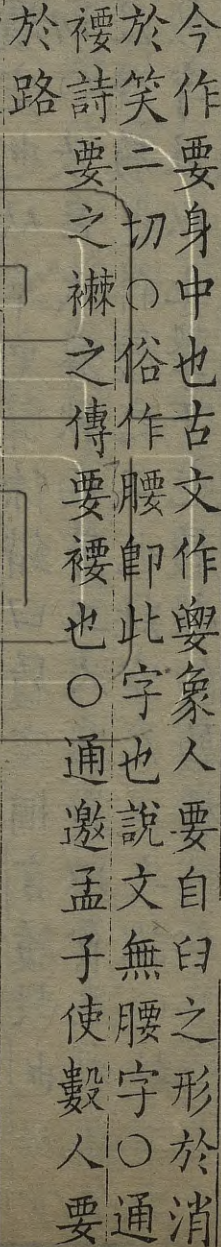 今作要身中也古文作𡢗象人要自𦥑之形於消
於笑二切○俗作腰卽此字也說文無腰字○通
褄詩要之襋之傳要褄也○通邀孟子使數人要
於路